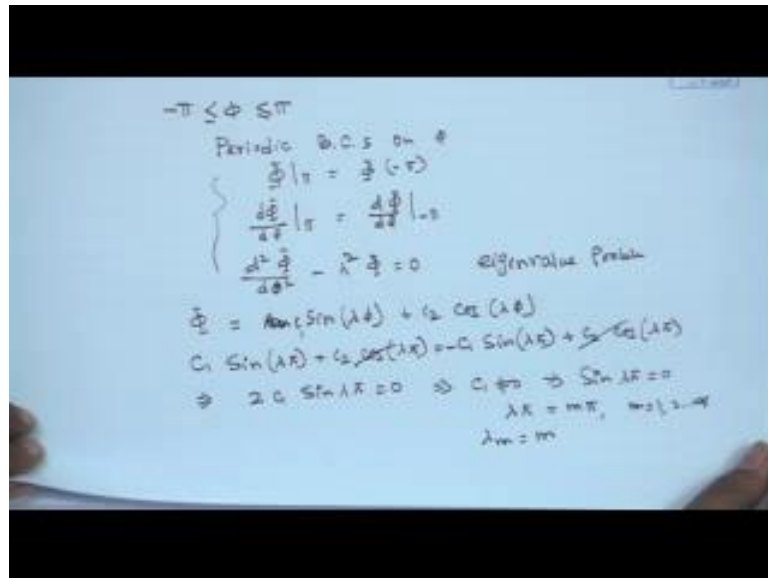 -π ≤ Φ ≤ π
Periodic B.C.s on Φ
Φ|π = Φ(-π)
dΦ/dΦ|π = dΦ/dΦ|-π
d²Φ/dΦ² - λ²Φ = 0 eigenvalue Problem
Φ = C₁ Sin(λΦ) + C₂ Cos(λΦ)
C₁ Sin(λπ) + C₂ Cos(λπ) = -C₁ Sin(λπ) + C₂ Cos(λπ)
⇒ 2C₁ Sin λπ = 0 ⇒ C₁ ≠ 0 ⇒ Sin λπ = 0
λπ = mπ, m=1,2..∞
λm = m